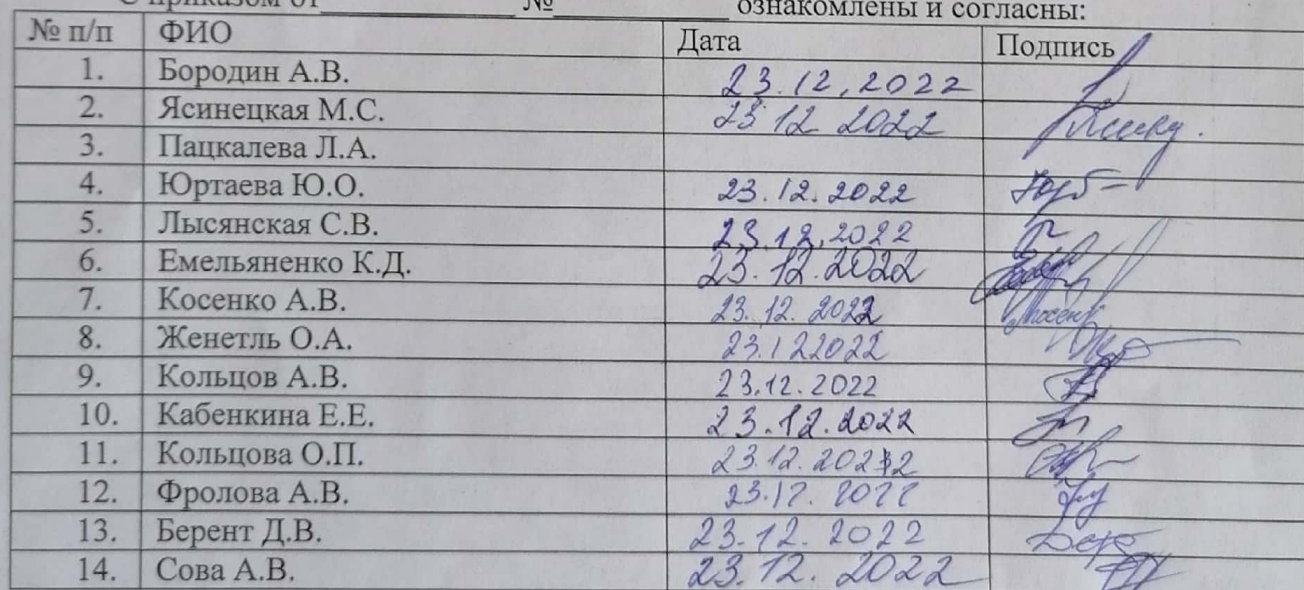 С приказом от_______________ №______________ ознакомлены и согласны:
№ п/п ФИО Дата Подпись
1. Бородин А.В. 23.12.2022
2. Ясинецкая М.С. 23 12 2022
3. Пацкалева Л.А.
4. Юртаева Ю.О. 23.12.2022
5. Лысянская С.В. 23.12.2022
6. Емельяненко К.Д. 23.12.2022
7. Косенко А.В. 23.12.2022
8. Женетль О.А. 23.122022
9. Кольцов А.В. 23.12.2022
10. Кабенкина Е.Е. 23.12.2022
11. Кольцова О.П. 23.12.2022
12. Фролова А.В. 23.12.2022
13. Берент Д.В. 23.12.2022
14. Сова А.В. 23.12.2022